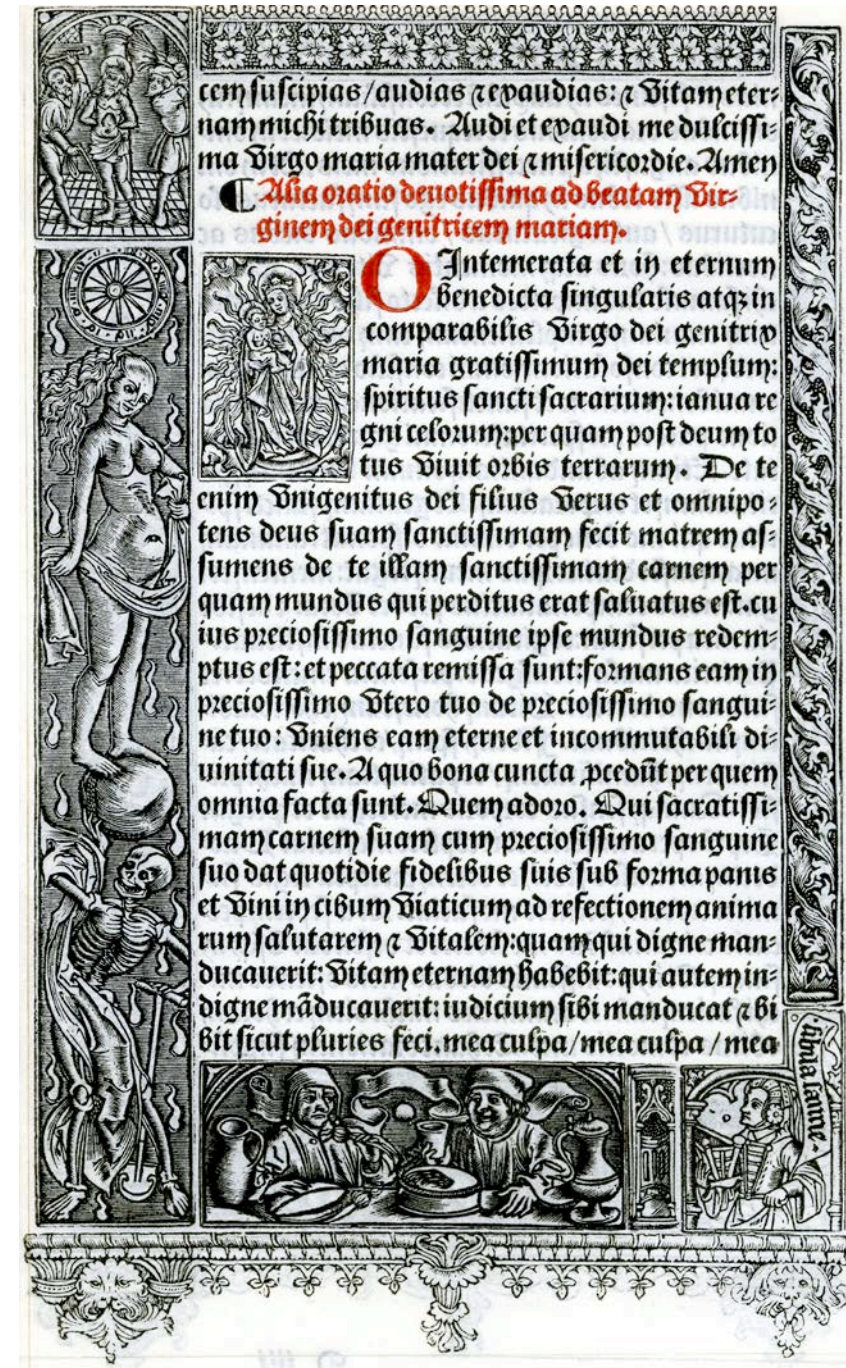 cem suscipias/audias ⁊ exaudias: ⁊ Vitam eter⸗
nam michi tribuas. Audi et exaudi me dulcissi⸗
ma Virgo maria mater dei ⁊ misericordie. Amen
¶ Alia oratio deuotissima ad beatam Vir⸗
ginem dei genitricem mariam.
O Intemerata et in eternum
benedicta singularis atqꝫ in
comparabilis Virgo dei genitrix
maria gratissimum dei templum:
spiritus sancti sacrarium: ianua re
gni celorum: per quam post deum to
tus Viuit orbis terrarum. De te
enim Vnigenitus dei filius Verus et omnipo⸗
tens deus suam sanctissimam fecit matrem as⸗
sumens de te illam sanctissimam carnem per
quam mundus qui perditus erat saluatus est. cu
ius preciosissimo sanguine ipse mundus redem⸗
ptus est: et peccata remissa sunt: formans eam in
preciosissimo Vtero tuo de preciosissimo sangui⸗
ne tuo: Vniens eam eterne et incommutabili di⸗
uinitati sue. A quo bona cuncta ꝓcedūt per quem
omnia facta sunt. Quem adoro. Qui sacratissi⸗
mam carnem suam cum preciosissimo sanguine
suo dat quotidie fidelibus suis sub forma panis
et Vini in cibum Viaticum ad refectionem anima
rum salutarem ⁊ Vitalem: quam qui digne man⸗
ducauerit: Vitam eternam habebit: qui autem in⸗
digne māducauerit: iudicium sibi manducat ⁊ bi
bit sicut pluries feci. mea culpa/mea culpa/mea